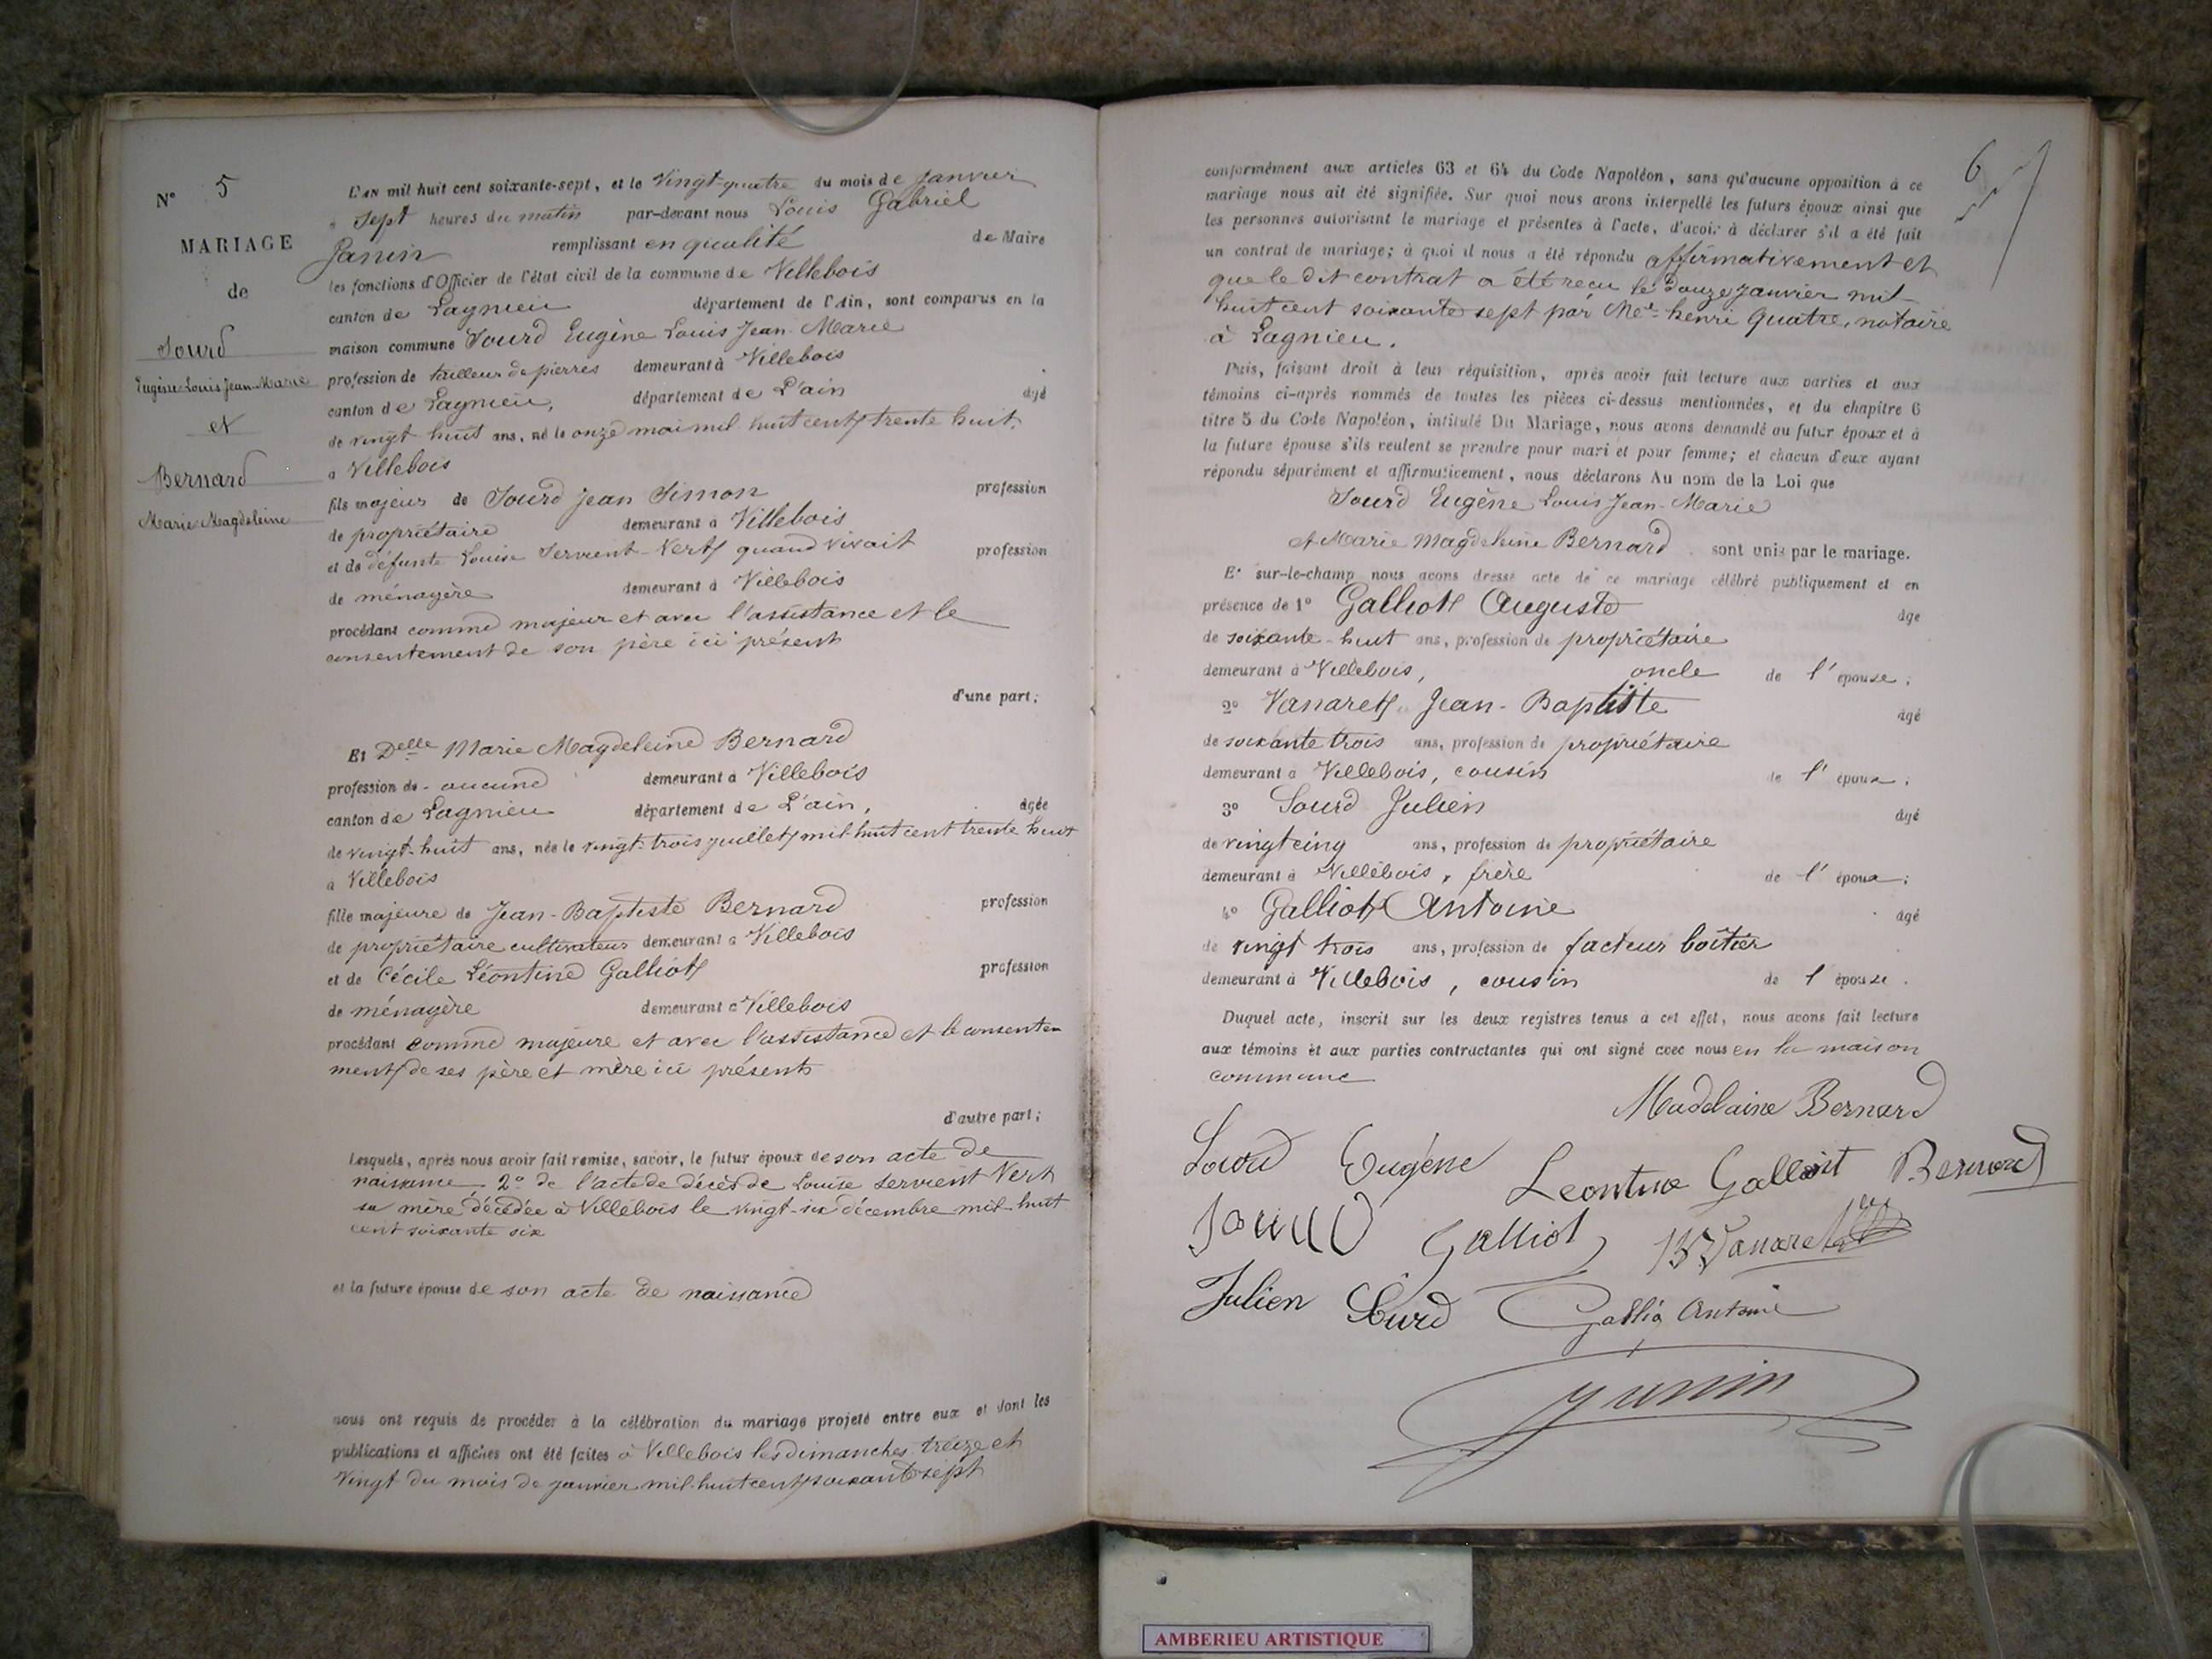 N° 5
MARIAGE
de
Sourd
Eugène Louis Jean-Marie
et
Bernard
Marie Magdeleine
L'AN mil huit cent soixante-sept, et le Vingt-quatre du mois de Janvier
à Sept heures du matin par-devant nous Louis Gabriel
Janin remplissant en qualité de Maire
les fonctions d'Officier de l'état civil de la commune de Villebois
canton de Lagnieu département de l'Ain, sont comparus en la
maison commune Sourd Eugène Louis Jean-Marie
profession de tailleur de pierres demeurant à Villebois
canton de Lagnieu, département de L'ain âgé
de vingt-huit ans, né le onze mai mil huit cent trente huit,
à Villebois
fils majeur de Sourd Jean Simon profession
de propriétaire demeurant à Villebois
et de défunte Louise Servient-Vert quand vivait profession
de ménagère demeurant à Villebois
procédant comme majeur et avec l'assistance et le
consentement de son père ici présent
d'une part;
Et Delle Marie Magdeleine Bernard
profession de - aucune demeurant à Villebois
canton de Lagnieu département de L'ain, âgée
de vingt-huit ans, née le vingt-trois juillet mil-huit cent trente huit
à Villebois
fille majeure de Jean-Baptiste Bernard profession
de propriétaire cultivateur demeurant à Villebois
et de Cécile Léontine Galliot profession
de ménagère demeurant à Villebois
procédant comme majeure et avec l'assistance et le consente
ment de ses père et mère ici présents
d'autre part;
Lesquels, après nous avoir fait remise, savoir, le futur époux de son acte de
naissance 2° de l'acte de décès de Louise Servient Vert
sa mère décédée à Villebois le vingt-six décembre mil-huit
cent soixante six
et la future épouse de son acte de naissance
nous ont requis de procéder à la célébration du mariage projeté entre eux et dont les
publications et affiches ont été faites à Villebois les dimanches treize et
vingt du mois de janvier mil-huit cent soixante sept
6
conformément aux articles 63 et 64 du Code Napoléon, sans qu'aucune opposition à ce
mariage nous ait été signifiée. Sur quoi nous avons interpellé les futurs époux ainsi que
les personnes autorisant le mariage et présentes à l'acte, d'avoir à déclarer s'il a été fait
un contrat de mariage; à quoi il nous a été répondu affirmativement et
que le dit contrat a été reçu le douze janvier mil-
huit cent soixante sept par Me Henri Quatre, notaire
à Lagnieu.
Puis, faisant droit à leur réquisition, après avoir fait lecture aux parties et aux
témoins ci-après nommés de toutes les pièces ci-dessus mentionnées, et du chapitre 6
titre 5 du Code Napoléon, intitulé Du Mariage, nous avons demandé au futur époux et à
la future épouse s'ils veulent se prendre pour mari et pour femme; et chacun d'eux ayant
répondu séparément et affirmativement, nous déclarons Au nom de la Loi que
Sourd Eugène Louis Jean-Marie
et Marie Magdeleine Bernard sont unis par le mariage.
Et sur-le-champ nous avons dressé acte de ce mariage célébré publiquement et en
présence de 1° Galliot Auguste âge
de soixante-huit ans, profession de propriétaire
demeurant à Villebois, oncle de l'épouse;
2° Vanaret Jean-Baptiste âgé
de soixante trois ans, profession de propriétaire
demeurant à Villebois, cousin de l'époux;
3° Sourd Julien âgé
de vingt cinq ans, profession de propriétaire
demeurant à Villebois, frère de l'époux;
4° Galliot Antoine âgé
de vingt trois ans, profession de facteur boîtier
demeurant à Villebois, cousin de l'épouse.
Duquel acte, inscrit sur les deux registres tenus à cet effet, nous avons fait lecture
aux témoins et aux parties contractantes qui ont signé avec nous en la maison
commune
Madelaine Bernard
Sourd Eugène Leontine Galliot Bernard
Galliot Vanaret
Julien Sourd Gallio Antoine
Janin
AMBERIEU ARTISTIQUE